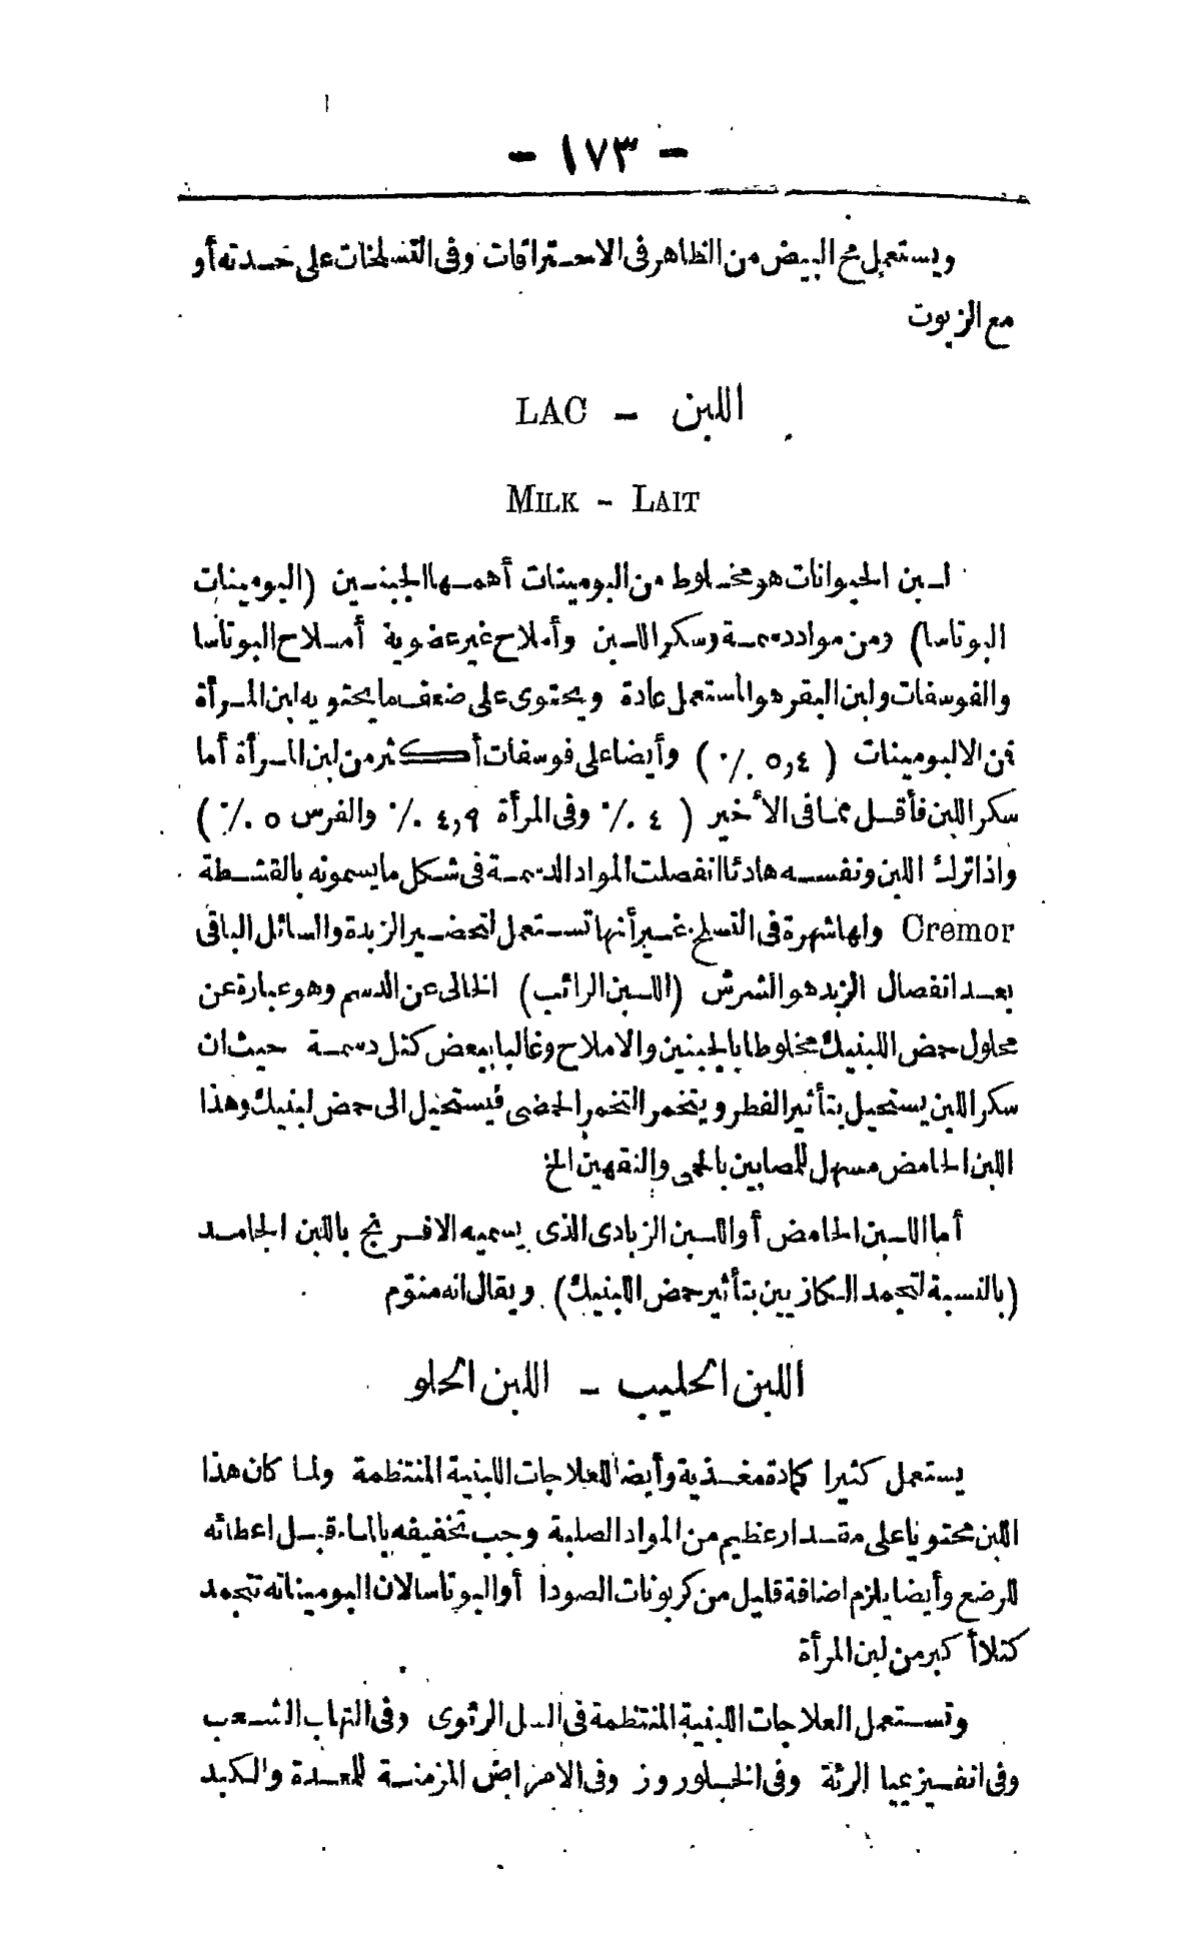 - ١٧٣ -
ويستعمل مح البيض من الظاهر فى الاحتراقات وفى التسلخات على حدته أو
مع الزيوت
اللبن - LAC
MILK - LAIT
لبن الحيوانات هو مخلوط من البومينات أهمها الجبنين (البومينات
البوتاسا) ومن مواد دسمة وسكر اللبن وأملاح غير عضوية أملاح البوتاسا
والفوسفات ولبن البقر هو المستعمل عادة ويحتوى على ضعف ما يحتويه لبن المرأة
من الالبومينات ( ٥,٤ ٪ ) وأيضا على فوسفات أكثر من لبن المرأة أما
سكر اللبن فأقل مما فى الأخير ( ٤ ٪ وفى المرأة ٤,٩ ٪ والفرس ٥ ٪ )
واذا ترك اللبن ونفسه هادئا انفصلت المواد الدسمة فى شكل ما يسمونه بالقشطة
Cremor ولها شهرة فى التسلخ غير أنها تستعمل لتحضير الزبدة والسائل الباقى
بعد انفصال الزبد هو الشرش (اللبن الرائب) الخالى عن الدسم وهو عبارة عن
محلول حمض اللبنيك مخلوطا بالجبنين والاملاح وغالبا ببعض كتل دسمة حيث ان
سكر اللبن يستحيل بتأثير الفطر ويتخمر التخمر الحمضى فيستحيل الى حمض لبنيك وهذا
اللبن الحامض مسهل للمصابين بالحمى والنقهين الخ
أما اللبن الحامض أو اللبن الزبادى الذى يسميه الافرنج باللبن الجامد
(بالنسبة لتجمد الكازيين بتأثير حمض اللبنيك) ويقال انه منوّم
اللبن الحليب - اللبن الحلو
يستعمل كثيرا كمادة مغذية وأيضا للعلاجات اللبنية المنتظمة ولما كان هذا
اللبن محتويا على مقدار عظيم من المواد الصلبة وجب تخفيفه بالماء قبل اعطائه
للرضع وأيضا يلزم اضافة قليل من كربونات الصودا أو البوتاسا لان البوميناته تتجمد
كتلا أكبر من لبن المرأة
وتستعمل العلاجات اللبنية المنتظمة فى السل الرئوى وفى التهاب الشعب
وفى انفسيزيميا الرئة وفى الخلوروز وفى الامراض المزمنة للمعدة والكبد